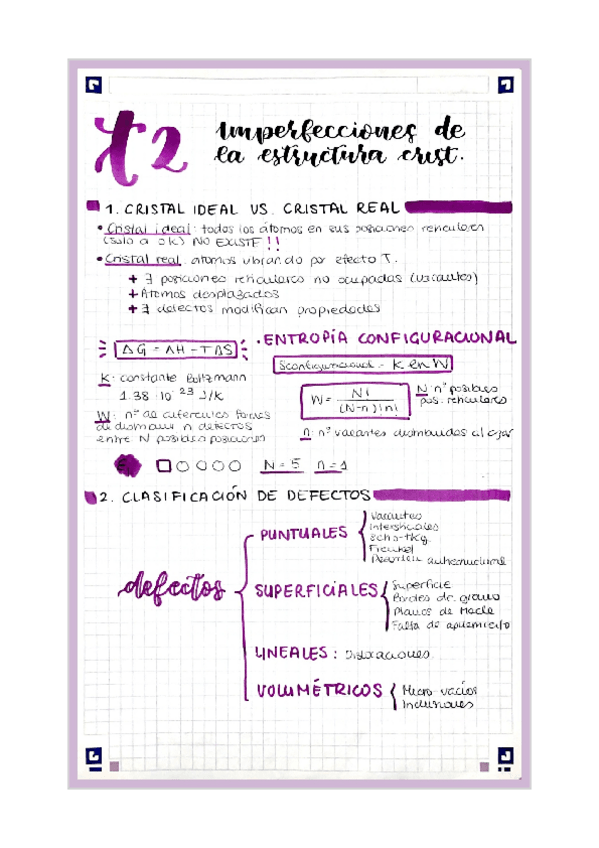 t2 Imperfecciones de
la estructura crist.
1. CRISTAL IDEAL VS. CRISTAL REAL
• Cristal ideal: todos los átomos en sus posiciones reticulares
(solo a 0K) NO EXISTE !!
• Cristal real: átomos vibrando por efecto T.
+ ∃ posiciones reticulares no ocupadas (vacantes)
+ Átomos desplazados
+ ∃ defectos modifican propiedades
ΔG = ΔH - TΔS
K: constante Boltzmann
1.38·10⁻²³ J/K
W: nº de diferentes formas
de distribuir n defectos
entre N posibles posiciones
• ENTROPÍA CONFIGURACIONAL
Sconfiguracional = K ln W
W = N! / (N-n)!n!
N: nº posibles
pos. reticulares
n: nº vacantes distribuidas al azar
N = 5 n = 1
2. CLASIFICACIÓN DE DEFECTOS
defectos
PUNTUALES
Vacantes
Intersticiales
Schottky
Frenkel
Desorden
SUPERFICIALES
Superficie
Bordes de grano
Planos de Macla
Falta de apilamiento
LINEALES: Dislocaciones.
VOLUMÉTRICOS
Micro-vacíos
Inclusiones